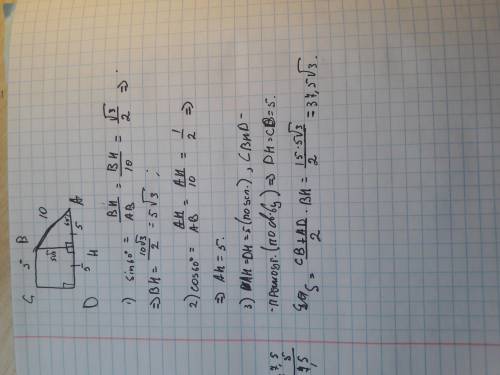 C 5 B
10
5√3
60°
D 5 H 5 A
1) sin60° = BH/AB = BH/10 = √3/2 ⇒
⇒ BH = 10√3/2 = 5√3;
2) cos60° = AH/AB = AH/10 = 1/2 ⇒
⇒ AH = 5.
3) AH = DH = 5 (по усл.), CBHD -
- прямоуг. (по св-ву) ⇒ DH = CB = 5.
S = CB+AD/2 · BH = 15·5√3/2 = 37,5√3.
7,5
5